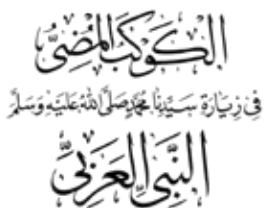 الكَوكَبُ المُضِيُّ
فِي زِيَارَةِ سَيِّدِنَا مُحَمَّدٍ صَلَّى اللهُ عَلَيْهِ وَسَلَّمَ
النَّبِيِّ العَرَبِيِّ